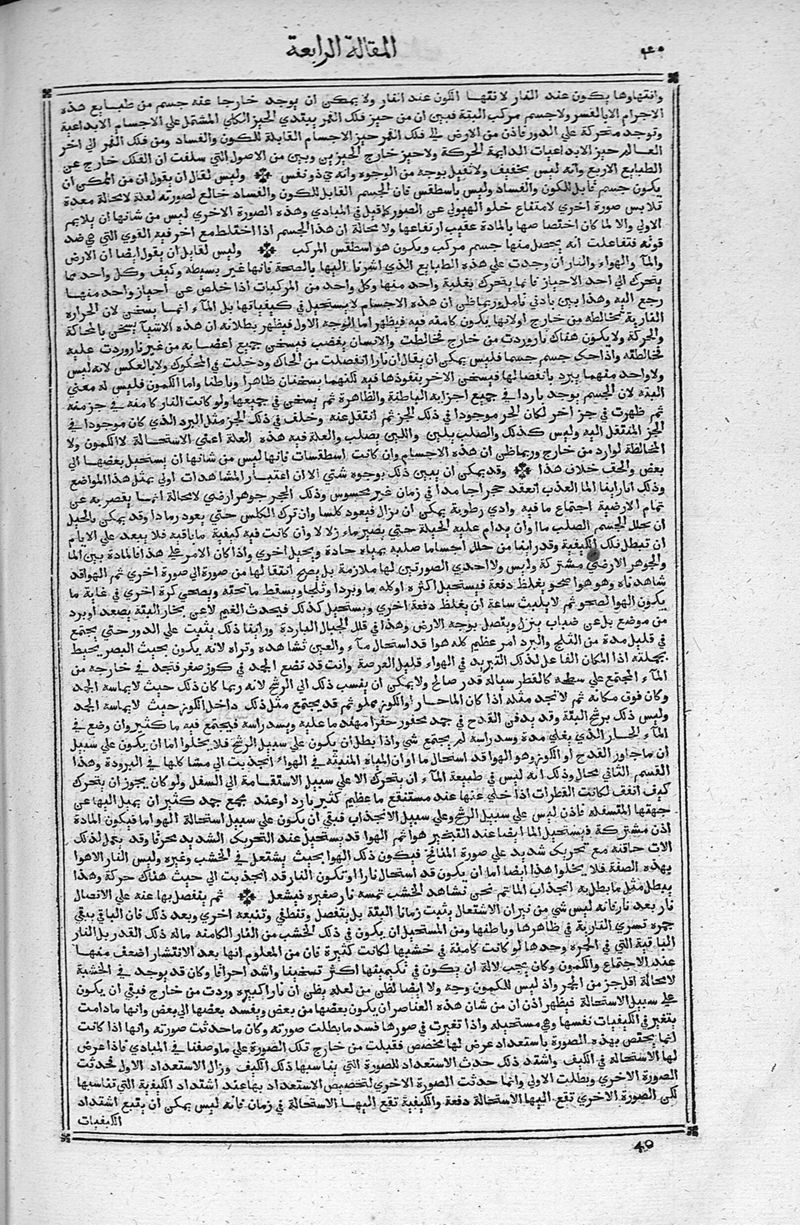 المقالة الرابعة
وانتهاوها يكون عند النار لانتها الكون عند النار ولا يمكن ان يوجد خارجا عنه جسم من طبايع هذه
الاجرام الا بالقسر ولا جسم مركب البتة فبين ان من حيز فلك القمر يبتدي الحيز الكاي المشتمل علي الاجسام الابداعية
وتوجد متحركة علي الدور فاذن من الارض الي فلك القمر حيز الاجسام القابلة للكون والفساد ومن فلك القمر الي اخر
العالم حيز الابداعيات الدايمة الحركة ولا حيز خارج الحيزين وبين من الاصول التي سلفت ان الفلك خارج عن
الطبايع الاربع وانه ليس بخفيف ولا ثقيل بوجه من الوجوه وانه ذو نفس وليس لقايل ان يقول ان من الممكن ان
يكون جسم قابل للكون والفساد وليس باسطقس فان الجسم القابل للكون والفساد خالع لصورته لعلة لا محالة معدة
تلابس صورة اخري لامتناع خلو الهيولي عن الصور كما قيل في المبادي وهذه الصورة الاخري ليس من شانها ان يلايم
الاولي والا لما كان اختصاصها بالمادة عقيب ارتفاعها ولا محالة ان هذا الجسم اذا اختلط مع اخر فيه القوي التي هي ضد
قوته فتفاعلت انه يحصل منها جسم مركب ويكون هو اسطقس المركب وليس لقايل ان يقول ايضا ان الارض
والمآ والهواء والنار ان وجدت علي هذه الطبايع الذي اشرنا اليها بالصحة فانها غير بسيطة وكيف وكل واحد مما
يتحرك الي احد الاحياز فانما يتحرك بغلبة واحد منها وكل واحد من المركبات اذا خلص عن احياز واحد منها
رجع اليه وهذا بين بادني تامل وربما ظن ان هذه الاجسام لا يستحيل في كيفياتها بل المآء انما يسخن لان الحرارة
النارية تخالطه من خارج او لانها يكون كامنه فيه فيظهر اما الوجه الاول فيظهر بطلانه ان هذه الاشيآ يسخن بالمحاكة
والحركة ولا يكون هناك نار وردت من خارج فخالطت والانسان يغضب فيسخن جميع اعضايه من غير نار وردت عليه
فخالطته واذا حك جسم جسما فليس يمكن ان يقال ان نارا انفصلت من الحاك ودخلت في المحكوك ولا بالعكس لانه ليس
ولا واحد منهما يبرد بانفصالها فيسخن الاخر بنفوذها فيه لكنهما يسخنان ظاهرا وباطنا واما الكمون فليس له معني
البتة لان الجسم يوجد باردا في جميع اجزايه الباطنة والظاهرة ثم يسخن في جميعها ولو كانت النار كامنة في جز منه
ثم ظهرت في جز اخر لكان الحر موجودا في ذلك الجز ثم انتقل عنه وخلف في ذلك الجز مثل البرد الذي كان موجودا في
الجز المنتقل اليه وليس كذلك والصلب يلين واللين يصلب والعلة فيه هذه العلة اعني الاستحالة لا الكمون ولا
المخالطة لوارد من خارج وربما ظن ان هذه الاجسام وان كانت اسطقسات فانها ليس من شانها ان يستحيل بعضها الي
بعض والحق خلاف هذا وقد يمكن ان يبين ذلك بوجوه شتي الا ان اعتبار المشاهدات اولي بمثل هذا المواضع
وذلك انا راينا الما العذب انعقد حجرا جامدا في زمان غير محسوس وذلك الحجر جوهر ارضي لا محالة انما يقصر به عن
تمام الارضية اجتماع ما فيه وادي رطوبة يمكن ان يزال فيعود كلسا وان ترك الكلس حتي يعود رمادا وقد يمكن بالحيل
ان يحلل الجسم الصلب ما وان يدام عليه الحيلة حتي يصير مآء زلالا وان كانت فيه كيفية ما باقية فلا يبعد علي الايام
ان تبطل تلك الكيفية وقد راينا من حلل اجساما صلبة بمياه حادة وبحيل اخري واذا كان الامر علي هذا فالمادة بين الما
والجوهر الارضي مشتركة وليس ولا احدي الصورتين لها ملازمة بل يصح انتقالها من صورة الي صورة اخري ثم الهوا قد
شاهدناه وهو هوا صحو يغلظ دفعة فيستحيل اكثره او كله ما وبردا وثلجا ويسقط ما تحته ويصحي كرة اخري في غاية ما
يكون الهوا لصحو ثم لا يلبث ساعة ان يغلظ دفعة اخري ويستحيل كذلك فيحدث الغيم لا عن بخار البتة يصعد او برد
من موضع بل عن ضباب ينزل ويتصل بوجه الارض وهذا في قلل الجبال الباردة ورايناه ذلك يثبت علي الدور حتي يجتمع
في قليل مدة من الثلج والبرد امر عظيم كله هوا قد استحال مآء والعين تشاهده وتراه لانه يكون بحيث البصر يحيط
بجملته اذا المكان الفاعل لذلك التبريد في الهواء قليل العرصة وانت قد تضع الجمد في كوز صفر فتجد في خارجه من
المآء المجتمع علي سطحه كالقطر سياله قدر صالح ولا يمكن ان ينسب ذلك الي الرشح لانه ربما كان ذلك حيث لا يماسه الجمد
وكان فوق مكانه ثم لا تجد مثله اذا كان الما حارا والكوز مملو ثم قد يجتمع مثل ذلك داخل الكوز حيث لا يماسه الجمد
وليس ذلك برشح البتة وقد يدفن القدح في جمد محفور حفرا مهندما عليه ويسد راسه فيجتمع فيه ما كثير وان وضع في
المآء الحار الذي يغلي مدة وسد راسه لم يجتمع شي واذا بطل ان يكون علي سبيل الرشح فلا يخلوا اما ان يكون علي سبيل
ان ما جاوز القدح او الكوز وهو الهوا قد استحال ما او ان المياة المنبثه في الهواء انجذبت الي مشاكلها في البرودة وهذا
القسم الثاني محال وذلك انه ليس في طبيعة المآء ان يتحرك الا علي سبيل الاستقامة الي السفل ولو كان يجوز ان يتحرك
كيف اتفق لكانت القطرات اذا خلي عنها عند مستنقع ما عظيم كثير بارد او عند مجمع جمد كثير ان يميل اليها عن
جهتها المتسفله فاذن ليس علي سبيل الرشح وعلي سبيل الانجذاب فبقي ان يكون علي سبيل استحالة الهوا ما فيكون المادة
اذن مشتركة فيستحيل الما ايضا عند التبخير هوا ثم الهوا قد يستحيل عند التحريك الشديد محرقا وقد يعمل لذلك
الات حاقنه مع تحريك شديد علي صورة المنافخ فيكون ذلك الهوا بحيث يشتعل في الخشب وغيره وليس النار الا هوا
بهذه الصفة فلا يخلوا هذا ايضا اما ان يكون قد استحال نارا او يكون النار قد انجذبت الي حيث هناك حركة وهذا
يبطل مثل ما بطل به انجذاب الما ثم نحن نشاهد الخشب تمسه نار صغيره فيشعل ثم ينفصل بها عنه علي الاتصال
نار بعد نار فانه ليس شي من نيران الاشتعال يثبت زمانا البتة بل ينفصل وتنطفي وتتبعه اخري وبعد ذلك فان الباقي يبقي
جمره تسري النارية في ظاهرها وباطنها ومن المستحيل ان يكون في ذلك الخشب من النار الكامنه ماله ذلك القدر بل النار
الباقية التي في الجمره وحدها لو كانت كامنة في خشبها لكانت كثيرة فان من المعلوم انها بعد الانتشار اضعف منها
عند الاجتماع والكمون وكان يجب لا محالة ان يكون في تكمينها اكثر تسخينا واشد احراقا وكان قد يوجد في الخشبة
لا محالة اقل جز من الجمر واذ ليس للكمون وجه ولا ايضا لظن من لعله يظن ان نارا كبيره وردت من خارج فبقي ان يكون
علي سبيل الاستحالة فيظهر اذن ان من شان هذه العناصر ان يكون بعضها من بعض ويفسد بعضها الي بعض وانها مادامت
يتغير في الكيفيات نفسها وهي مستحيله واذا تغيرت في صورها فسد ما بطلت صورته وكان ما حدثت صورته وانها اذا كانت
انما يختص بهذه الصورة باستعداد عرض لها مخصص فقبلت من خارج تلك الصورة علي ما وصفنا في المبادي فاذا عرض
لها الاستحالة في الكيف واشتد ذلك حدث الاستعداد للصورة التي يناسبها ذلك الكيف وزال الاستعداد الاول فحدثت
الصورة الاخري وبطلت الاولي وانما حدثت الصورة الاخري لتخصيص الاستعداد بها عند اشتداد الكيفية التي تناسبها
لكن الصورة الاخري تقع اليها الاستحالة دفعة والكيفية تقع اليها الاستحالة في زمان فانه ليس يمكن ان يتبع اشتداد
الكيفيات
40